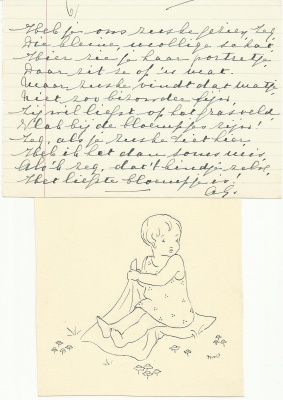 6)
Heb je ons zuske gezien, zeg
Die kleine, mollige schat,
Hier zie je haar portretje
Daar zit ze op 'n mat.
Maar zuske vindt dat matje
Niet zoo bizonder fijn,
Zij wil liefst op het grasveld
Vlak bij de bloempjes zijn!
Zeg, als je zuske ziet hier
Heb ik het dan soms mis,
Als 'k zeg, dat 't kindje zelve
Het liefste bloempje is!